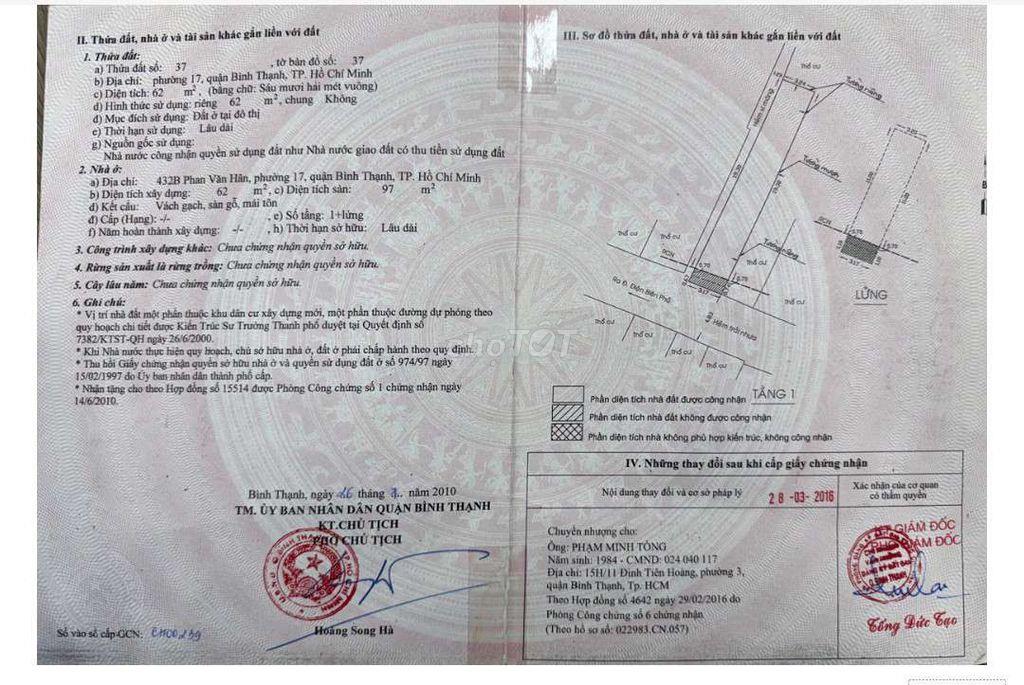 II. Thửa đất, nhà ở và tài sản khác gắn liền với đất
1. Thửa đất:
a) Thửa đất số: 37 , tờ bản đồ số: 37
b) Địa chỉ: phường 17, quận Bình Thạnh, TP. Hồ Chí Minh
c) Diện tích: 62 m², (bằng chữ: Sáu mươi hai mét vuông)
d) Hình thức sử dụng: riêng 62 m², chung Không
đ) Mục đích sử dụng: Đất ở tại đô thị
e) Thời hạn sử dụng: Lâu dài
g) Nguồn gốc sử dụng:
Nhà nước công nhận quyền sử dụng đất như Nhà nước giao đất có thu tiền sử dụng đất
2. Nhà ở:
a) Địa chỉ: 432B Phan Văn Hân, phường 17, quận Bình Thạnh, TP. Hồ Chí Minh
b) Diện tích xây dựng: 62 m², c) Diện tích sàn: 97 m²
d) Kết cấu: Vách gạch, sàn gỗ, mái tôn
đ) Cấp (Hạng): -/- , e) Số tầng: 1+lửng
f) Năm hoàn thành xây dựng: -/- , h) Thời hạn sở hữu: Lâu dài
3. Công trình xây dựng khác: Chưa chứng nhận quyền sở hữu.
4. Rừng sản xuất là rừng trồng: Chưa chứng nhận quyền sở hữu.
5. Cây lâu năm: Chưa chứng nhận quyền sở hữu.
6. Ghi chú:
* Vị trí nhà đất một phần thuộc khu dân cư xây dựng mới, một phần thuộc đường dự phóng theo
quy hoạch chi tiết được Kiến Trúc Sư Trưởng Thành phố duyệt tại Quyết định số
7382/KTST-QH ngày 26/6/2000.
* Khi Nhà nước thực hiện quy hoạch, chủ sở hữu nhà ở, đất ở phải chấp hành theo quy định.
* Thu hồi Giấy chứng nhận quyền sở hữu nhà ở và quyền sử dụng đất ở số 974/97 ngày
15/02/1997 do Ủy ban nhân dân thành phố cấp.
* Nhận tặng cho theo Hợp đồng số 15514 được Phòng Công chứng số 1 chứng nhận ngày
14/6/2010.
Bình Thạnh, ngày 26 tháng 7.. năm 2010
TM. ỦY BAN NHÂN DÂN QUẬN BÌNH THẠNH
KT.CHỦ TỊCH
PHÓ CHỦ TỊCH
Hoàng Song Hà
Số vào sổ cấp GCN:
III. Sơ đồ thửa đất, nhà ở và tài sản khác gắn liền với đất
Thổ cư
Tường riêng
Hẻm xi măng
Tường mượn
Tường riêng
Thổ cư
Thổ cư
Thổ cư
Thổ cư
Ra Đ. Điện Biên Phủ
Hẻm trải nhựa
Thổ cư
Thổ cư
Thổ cư
Thổ cư
LỬNG
TẦNG 1
Phần diện tích nhà đất được công nhận
Phần diện tích nhà đất không được công nhận
Phần diện tích nhà không phù hợp kiến trúc, không công nhận
IV. Những thay đổi sau khi cấp giấy chứng nhận
Nội dung thay đổi và cơ sở pháp lý
28-03-2016
Xác nhận của cơ quan
có thẩm quyền
Chuyển nhượng cho:
Ông: PHẠM MINH TÒNG
Năm sinh: 1984 - CMND: 024 040 117
Địa chỉ: 15H/11 Đinh Tiên Hoàng, phường 3,
quận Bình Thạnh, Tp. HCM
Theo Hợp đồng số 4642 ngày 29/02/2016 do
Phòng Công chứng số 6 chứng nhận
(Theo hồ sơ số: 022983.CN.057)
KT.GIÁM ĐỐC
PHÓ GIÁM ĐỐC
Tống Đức Tạo